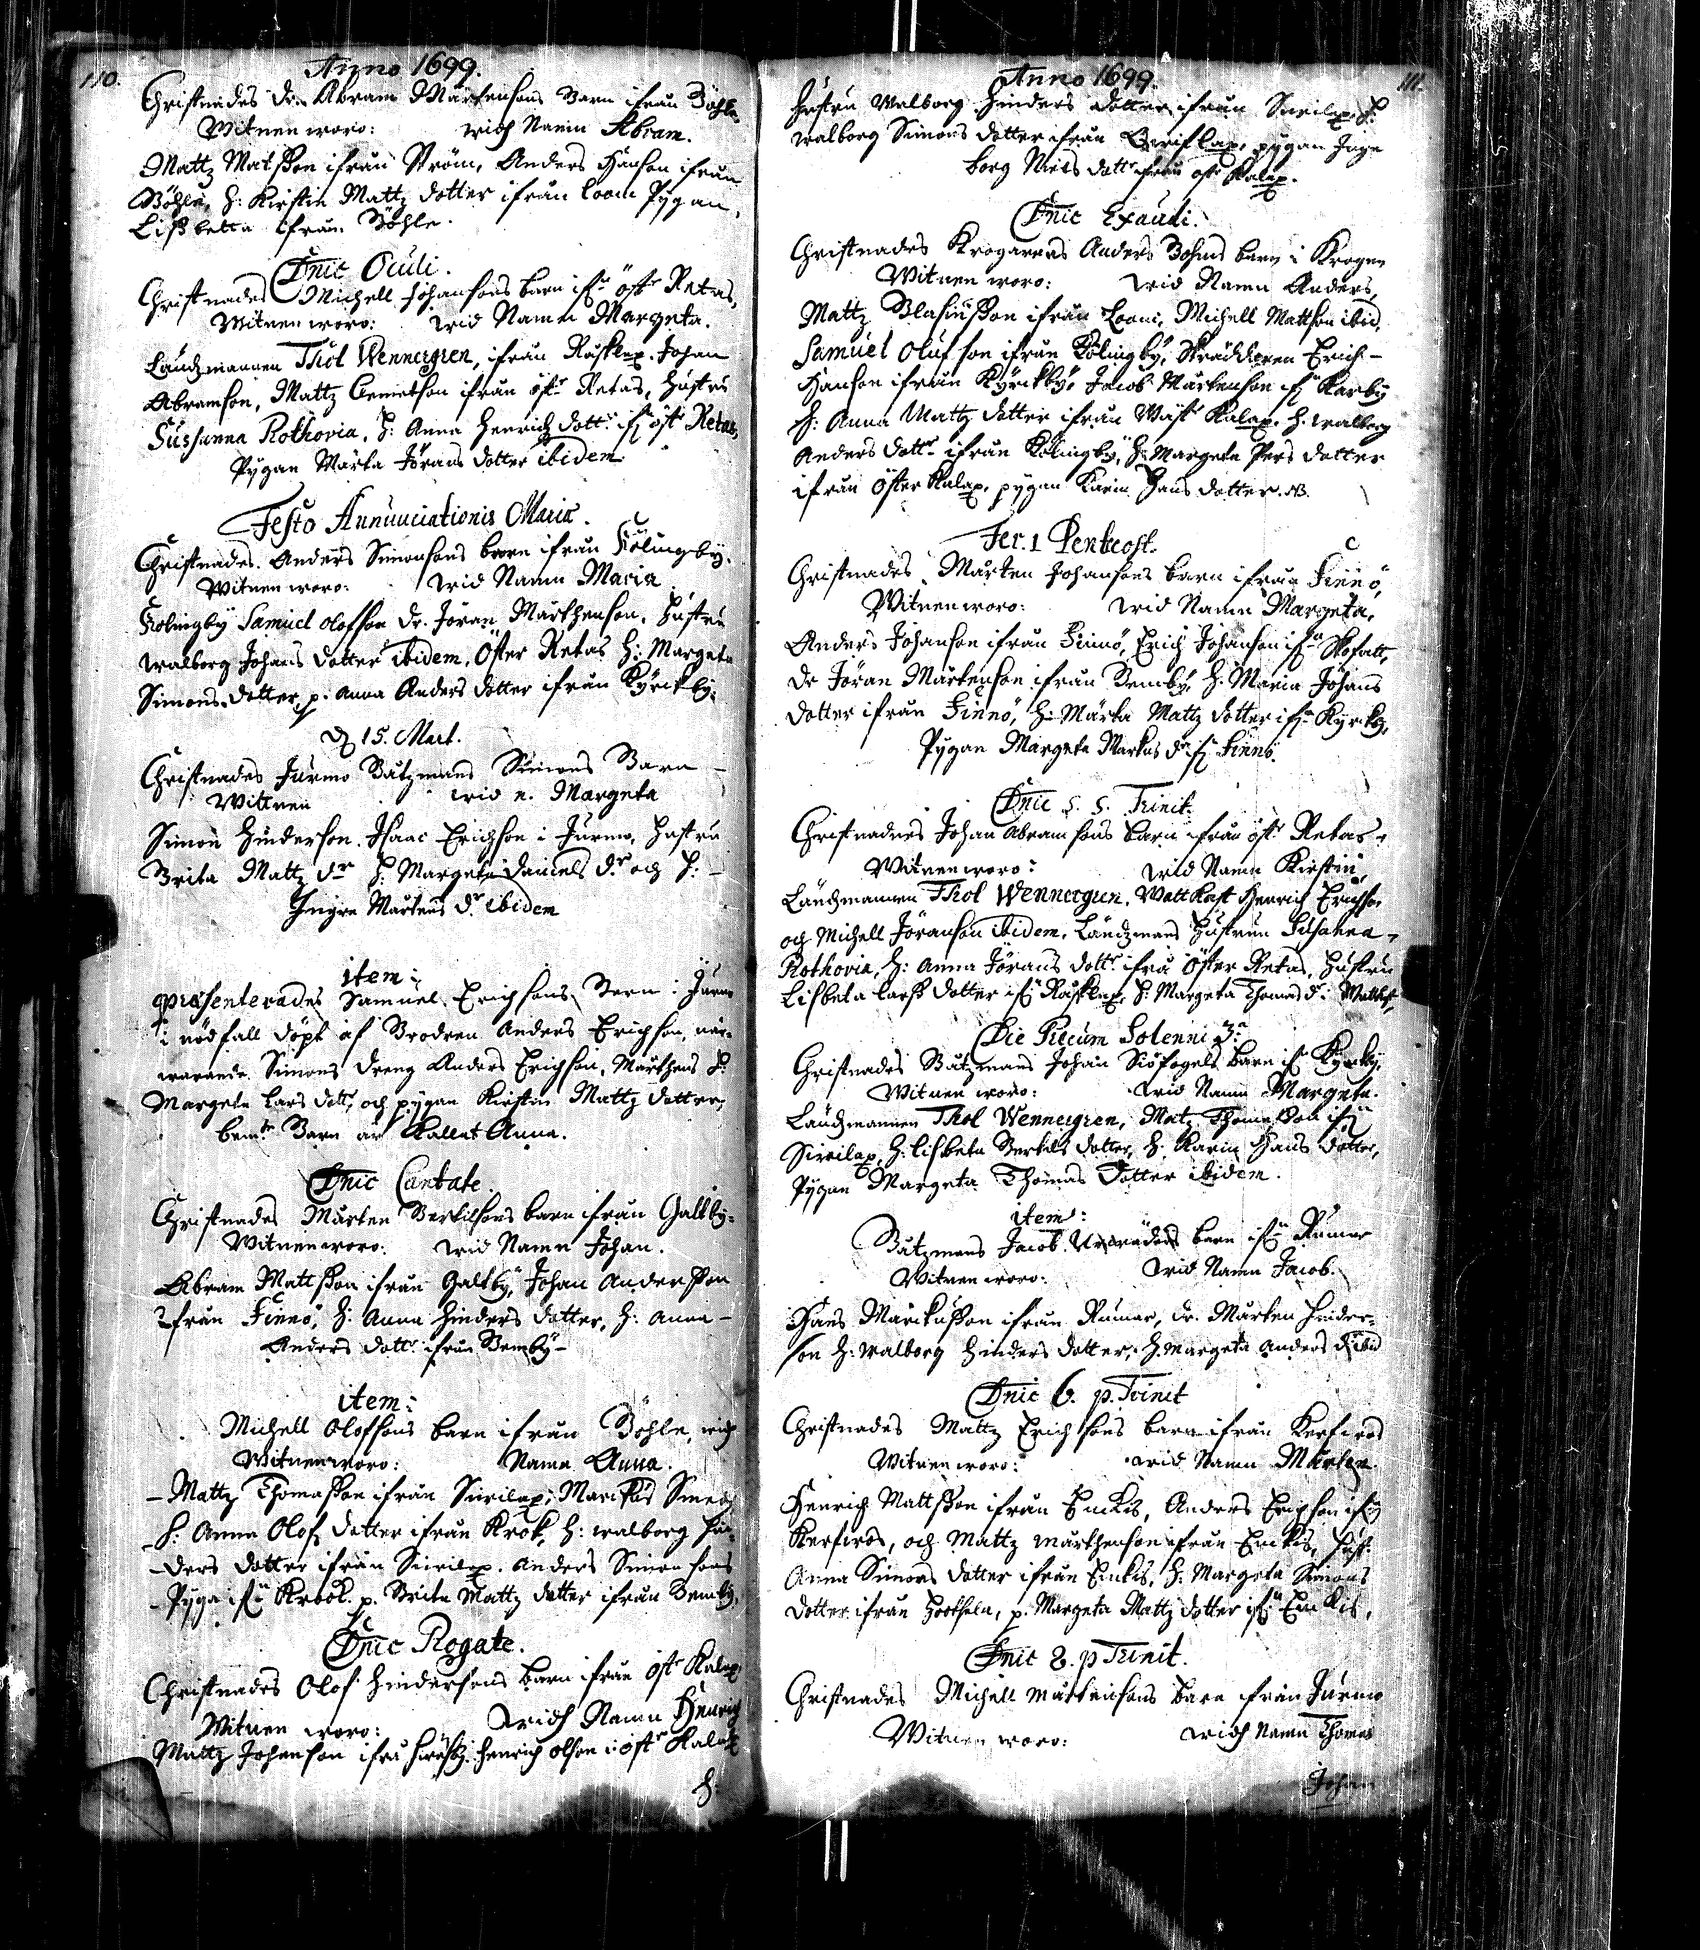 110.
Anno 1699.
Christnades Dr. Abram Mårtensons Barn ifrån Böhle
Witnen woro: widh Namn Abram.
Mattz Matsson ifrån Ström, Anders Hanson ifrån
Böhle, H: Kirstin Mattz dotter ifrån Loom Pygan
Lisbetta ifrån Böhle.
Dnic Oculi.
Christnades Michell Johansons barn ifrn östr Retas,
Witnen woro: wid Namn Margeta.
Ländzmannen Thol Wennergren, ifrån Råsklax. Johan
Abramson, Mattz Clemetson ifrån östr Retas, Hustru
Sussanna Rothovia, H: Anna Henrich dottr ifn öst Retas,
Pygan Märta Jörans dotter ibidem
Festo Annunciationis Mariæ.
Christnades Anders Simonsons barn ifrån Kölingby.
Witnen woro: wid Namn Maria
Kolingby Samuel olofson Dr. Jöran Mårthenson, Hustru
Walborg Johans dotter ibidem, Öster Retas H: Margeta
Simons dotter, p. Anna Anders dotter ifrån Kyrckby.
D. 15. Mart.
Christnades Jurmo Båtzmans Simons Barn
Wittnen wid n. Margeta
Simon Hinderson. Isaac Erichson i Jurmo, Hustru
Brita Mattz dr H: Margeta Daniels dr och H:
Ingre Mårtens dr ibidem
item:
præsenterades Samuel Erichsons Barn i Jurmo
i nödfall döpt af Brodren Anders Erichson, när-
warande Simons dreng Anders Erichson, Mårthens H:
Margeta Lars dottr, och pygan Kirstin Mattz dotter,
bemte Barn är kallat Anna.
Dnic Cantate.
Christnades Mårten Bertilsons barn ifrån Galtby.
Witnen woro: wid Namn Johan.
Abram Mattsson ifrån Galtby, Johan Andersson
ifrån Finnö, H: Anna Hinders dotter, H: Anna
Anders dottr ifrån Bemby
item:
Michell Olofsons barn ifrån Böhle, widh
Witnen woro: Namn Anna.
Mattz Thomasson ifrån Sirilax, Marckus Simons
H: Anna Olofz dotter ifrån Krok, H: walborg Hin-
ders dotter ifrån Sirilax. Anders Simonsons
Pyga ifrn Krook. p. Brita Mattz dotter ifrån Bemby,
Dnic Rogate.
Christnades Olof Hindersons barn ifrån östr Kalax
Witnen woro: widh Namn Henrich
Mattz Johanson ifrå Henrich olson i östr Kalax
H:
111.
Anno 1699.
Hustru Walborg Hinders dotter ifrån Sirilax, H:
walborg Simons dotter ifrån pygan Inge
borg Niels dottr ifrån östr Kalax.
Dnic Exaudi.
Christnades Krogarens Anders Bohms barn i Krogen
Witnen woro: wid Namn Anders,
Mattz Blasiusson ifrån Loom, Michell Mattson ibid.
Samuel Olufson ifrån Kölingby, Skräddaren Erich
Hanson ifrån Kyrckby, Jacob Mårtenson ifn Karby
H: Anna Mattz dotter ifrån Wäst Kalax, H. walborg
Anders dottr ifrån Kölingby, H: Margeta Pers dotter
ifrån Öster Kalax, pygan Karin Hans dotter.
Fer. 1 Pentecost.
Christnades Mårten Johansons barn ifrån Finnö,
Witnen woro: wid Namn Margeta,
Anders Johanson ifrån Finnö, Erich Johanson ifrn
Dr Jöran Mårtenson ifrån Bemby, H. Maria Johans
dotter ifrån Finnö, H: Märta Mattz dotter ifn Kyrckby,
Pygan Margeta Markus dr ifn Finnö.
Dnic S. S. Trinit.
Christnades Johan Abramsons barn ifrån östr Retas
Witnen woro: wid Namn Kirstin,
Ländzmannen Thol Wennergren. Wattkast Henrich Erichson
och Michell Jöranson ibidem. Ländzmans Hustrun Susanna
Rothovia, H: Anna Jörans dottr ifrå Öster Retas, Hustru
Lisbeta Larss dotter ifn Råsklax, H: Margeta Thomas dr i Wattkast,
Die Precum Solenni 3.
Christnades Båtzmans Johan Siöfogels barn ifn Kyrckby,
Witnen woro: wid Namn Margeta.
Ländzmannen Thol Wennergren, Mats ifrn
Sirilax, H: Lisbeta Bertils dotter, H. Karin Hans dotter,
Pygan Margeta Thomas Dotter ibidem.
item:
Båtzmans Jacob barn ifrn Rumar
Witnen woro: wid Namn Jacob.
Hans Marckusson ifrån Rumar, Dr. Mårten Hinder-
son H: Walborg Hinders dotter, H. Margeta Anders dr ibid
Dnic 6. p. Trinit
Christnades Mattz Erichsons barn ifrån Kerfiros
Witnen woro: wid Namn Mårten.
Henrich Mattsson ifrån Enckis, Anders Erichson ifn
Kerfiros, och Mattz Mårthenson ifrån Enckis, Hust:
Anna Simons dotter ifrån Enckis, H: Margeta Simons
dotter ifrån p. Margeta Mattz dotter ifrn Enckis,
Dnic 8. p Trinit.
Christnades Michell Mårtensons barn ifrån Jurmo
Witnen woro: widh Namn Thomas
Johan